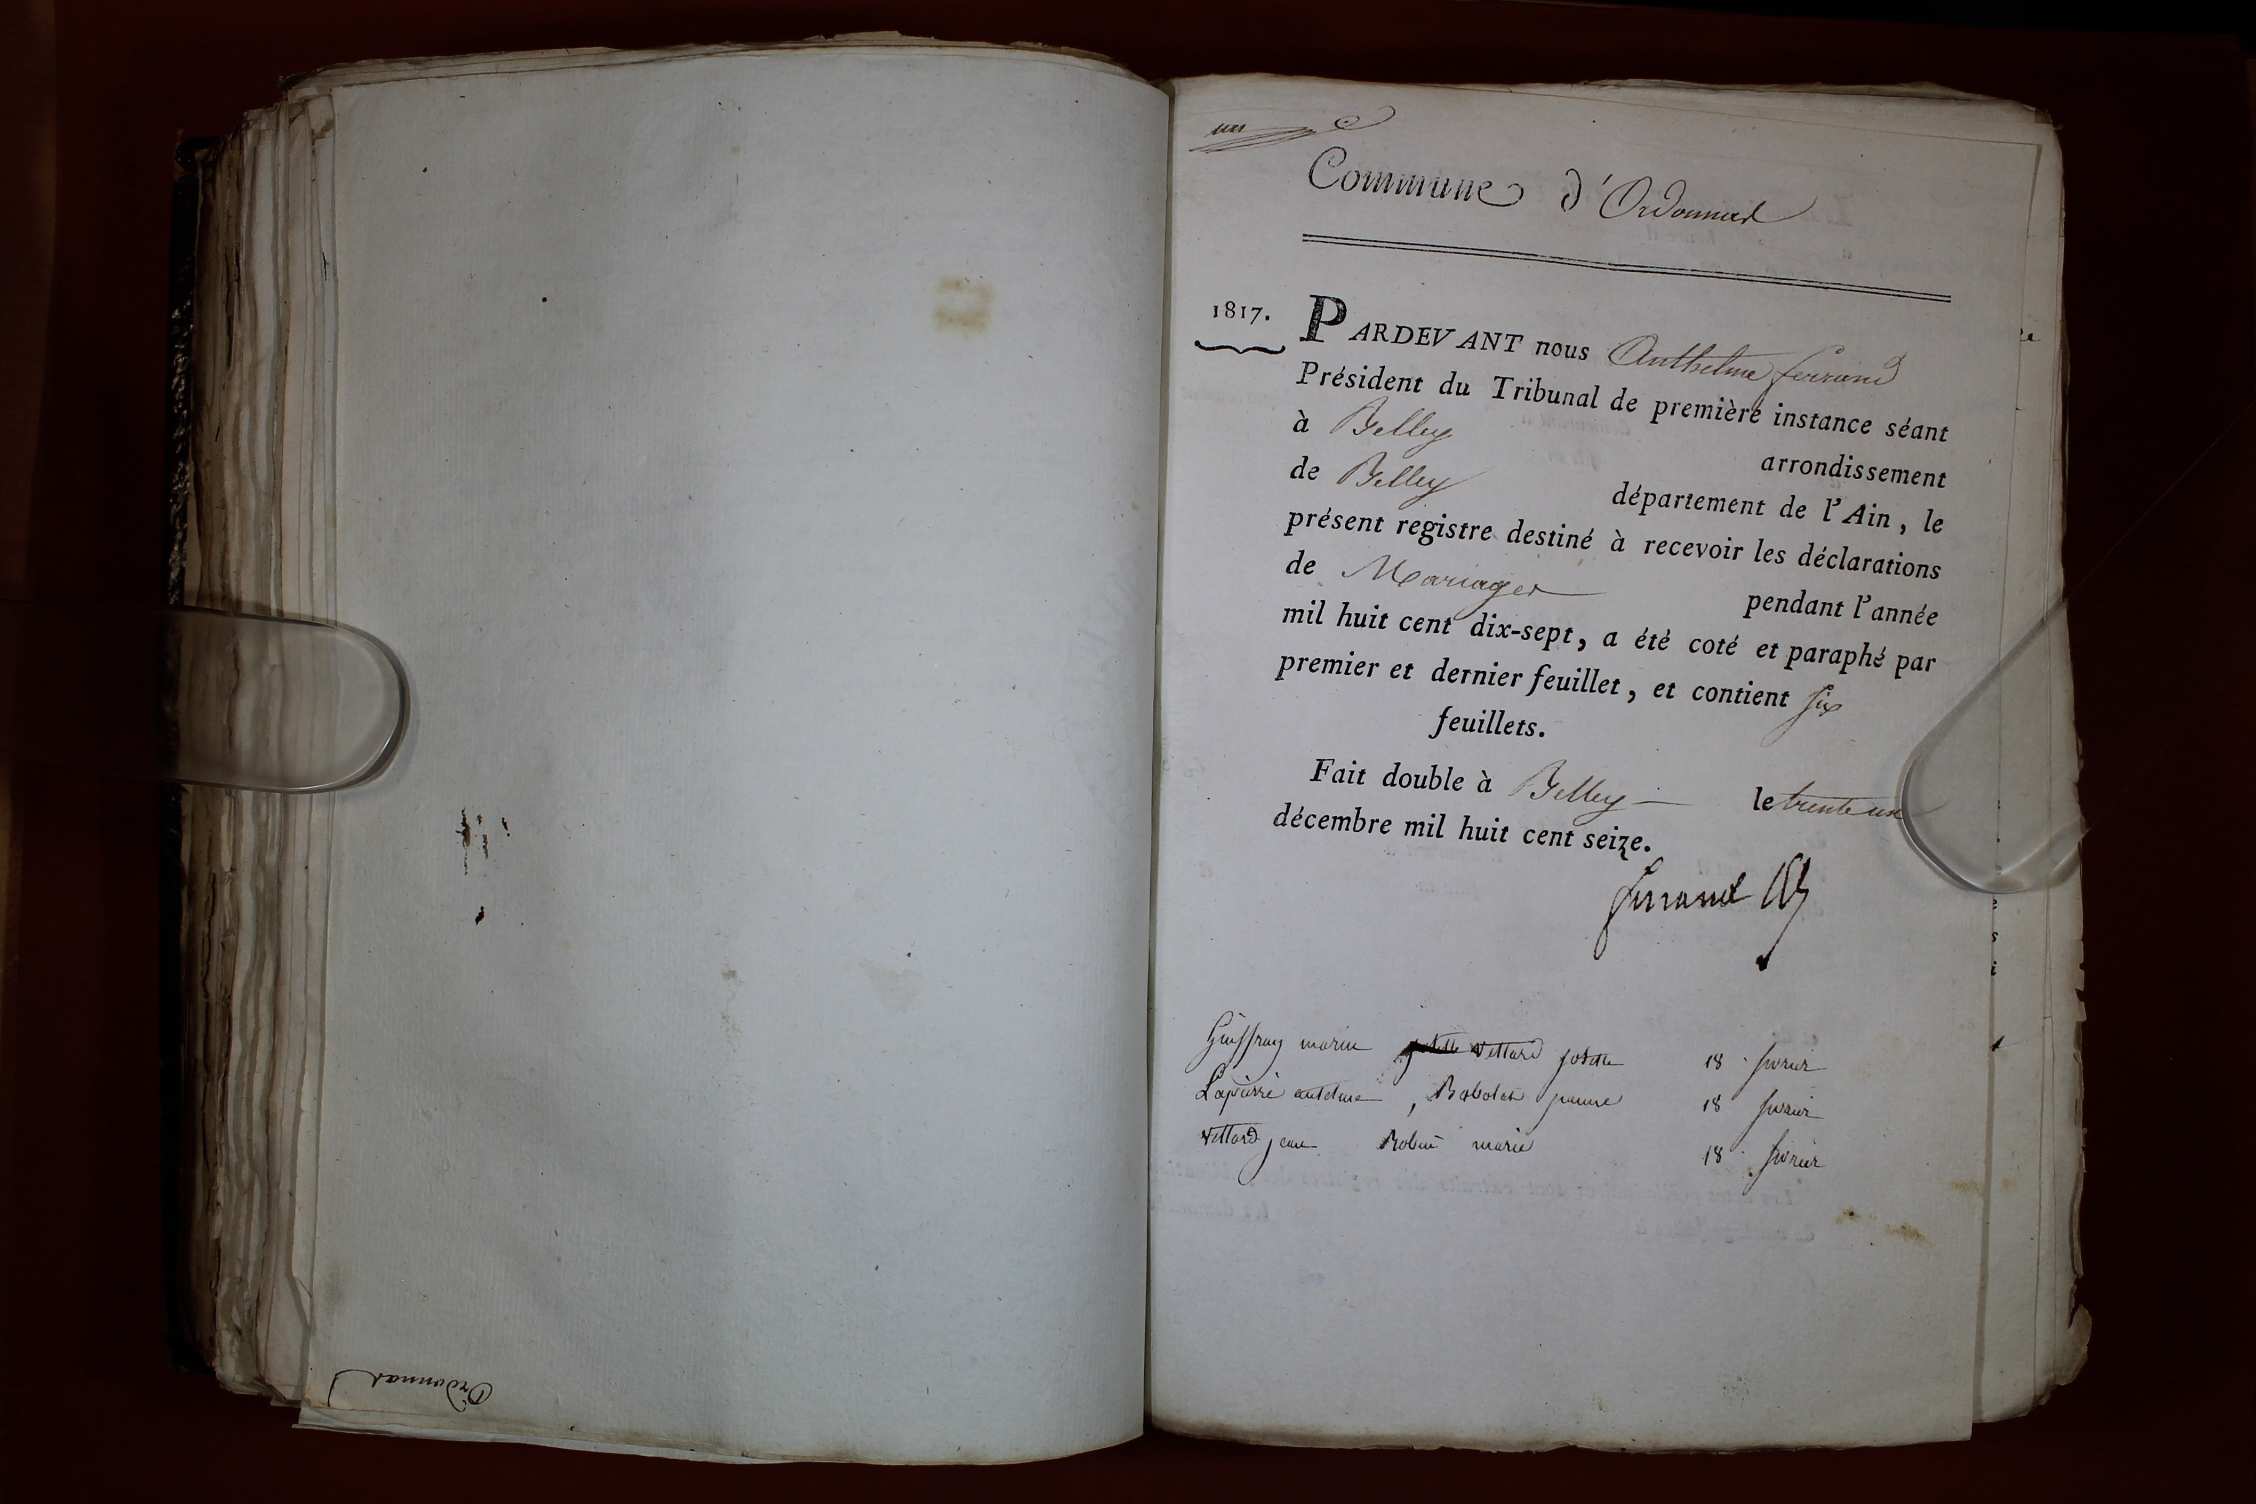 Ordonnas
un
Commune d'Ordonnas
1817.
PARDEVANT nous Anthelme ferrand
Président du Tribunal de première instance séant
à Belley arrondissement
de Belley département de l'Ain, le
présent registre destiné à recevoir les déclarations
de Mariages pendant l'année
mil huit cent dix-sept, a été coté et paraphé par
premier et dernier feuillet, et contient six
feuillets.
Fait double à Belley le trente un
décembre mil huit cent seize.
ferrand
Guiffray marin Vettard josette 18 fevrier
Lapierre antelme, Babolat jeanne 18 fevrier
Vettard jean Robin marie 18 fevrier